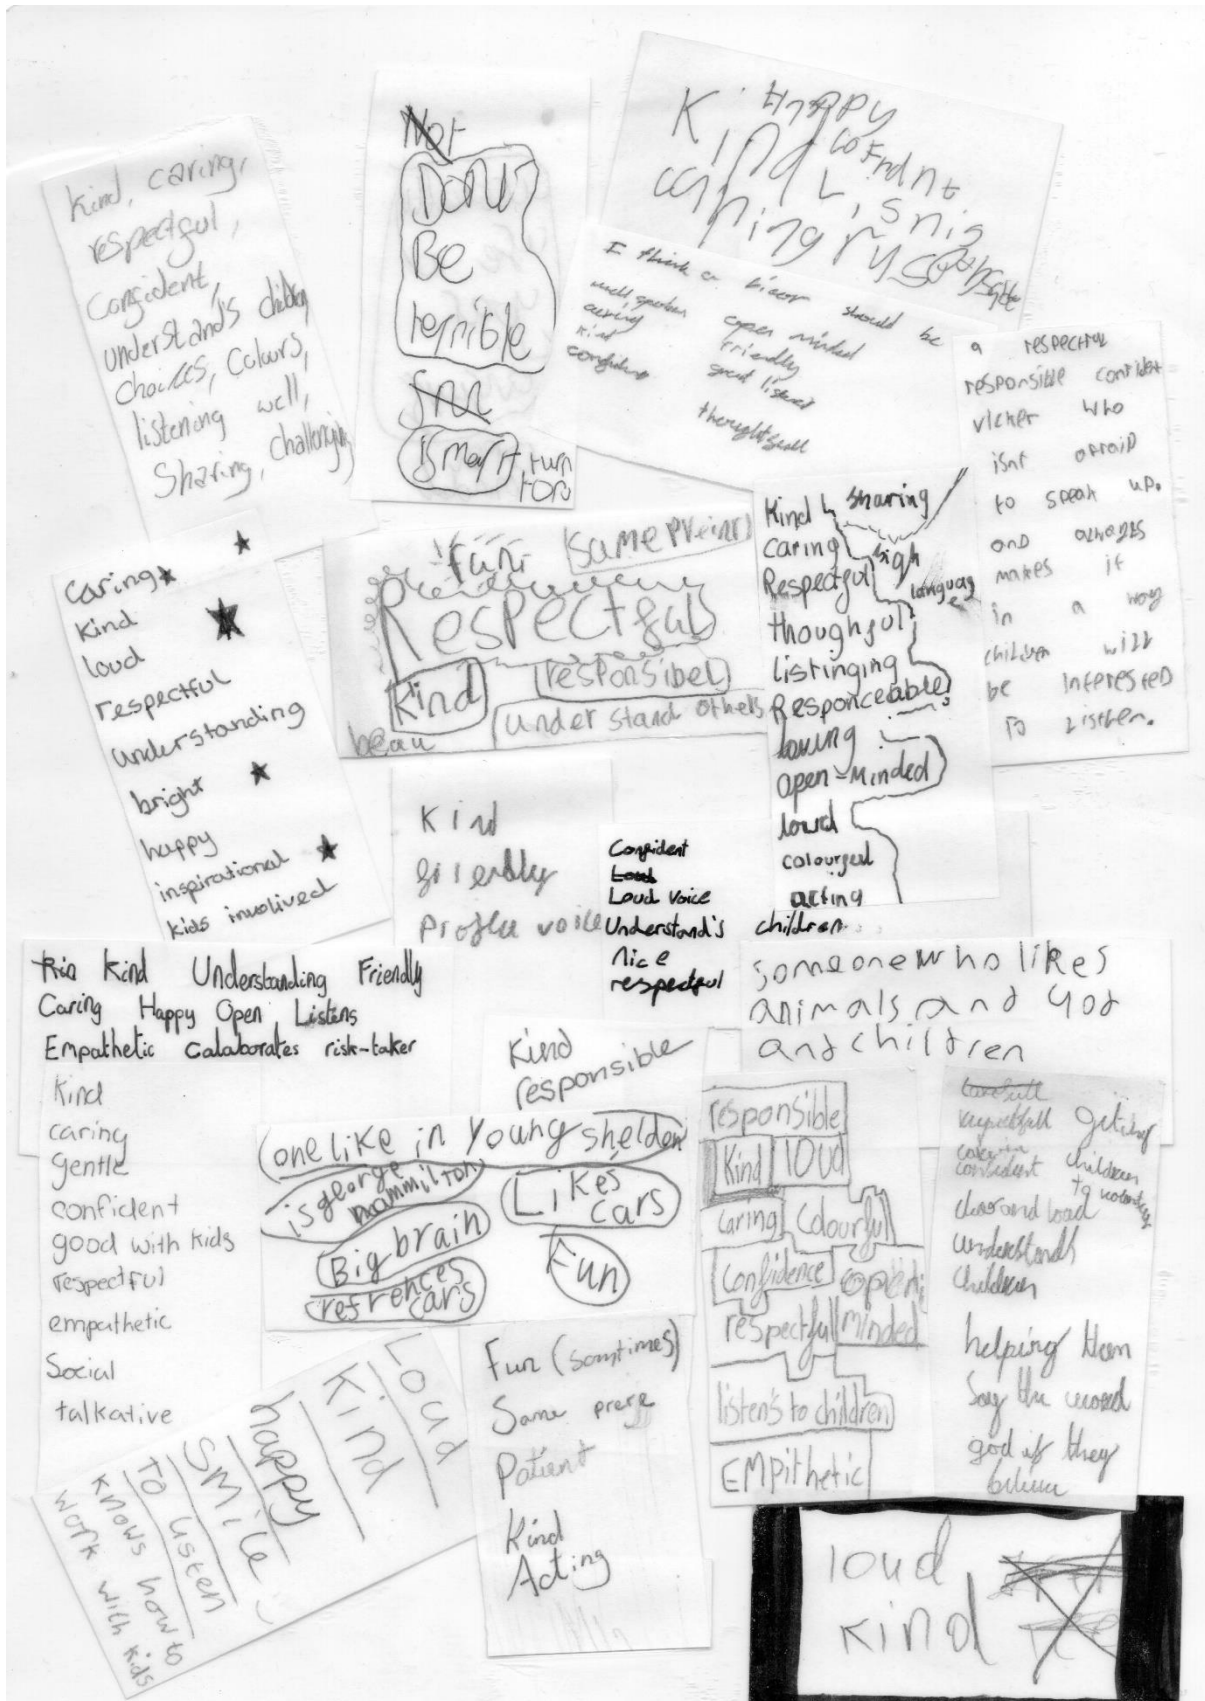 Kind, caring,
respectful,
Confident,
understand's children
choices, Colours,
listening well,
Sharing, challenging
Not
Dont
Be
terrible
fun
smart
turn
Happy
Kind
cofndnt
Lisnig
caring
I think a vicor should be
well spoken open minded
caring friendly
kind great listener
confident
thoughtfull
a respectful
responsible confident
vicker who
isnt afraid
to speak up.
and always
makes it
in a way
children will
be interested
to listhen.
caring
kind
loud
respectful
understanding
bright
happy
inspirational
kids involived
fun
Respectful
Kind
responsibel
under stand others
beau
Kind sharing
caring high
Respectful language
thoughful
listringing
Responceable
loving
open-minded
loud
colourful
acting
Kind
friendly
voice
Confident
Loud
Loud voice
Understand's children
nice
respectful
Kind Understanding Friendly
Caring Happy Open Listens
Empathetic Calaborates risk-taker
someone who likes
animals and god
and children
Kind
responsible
kind
caring
gentle
confident
good with kids
respectful
empathetic
Social
talkative
one like in young sheldon
is george
hammilton
Likes
cars
Big brain
Fun
refrences
cars
responsible
Kind loud
caring colourful
confidence open
respectful minded
listen's to children
EMPithetic
respectfull
confident children
clear and loud
understands
children
helping them
Say the word
god if they
Loud
Kind
happy
SMile
TO listen
knows how to
work with kids
Fun (somtimes)
Same
Patient
Kind
Acting
loud
kind